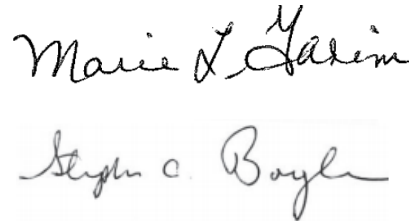 Marie L. Yarim
Stephen C. Boyle